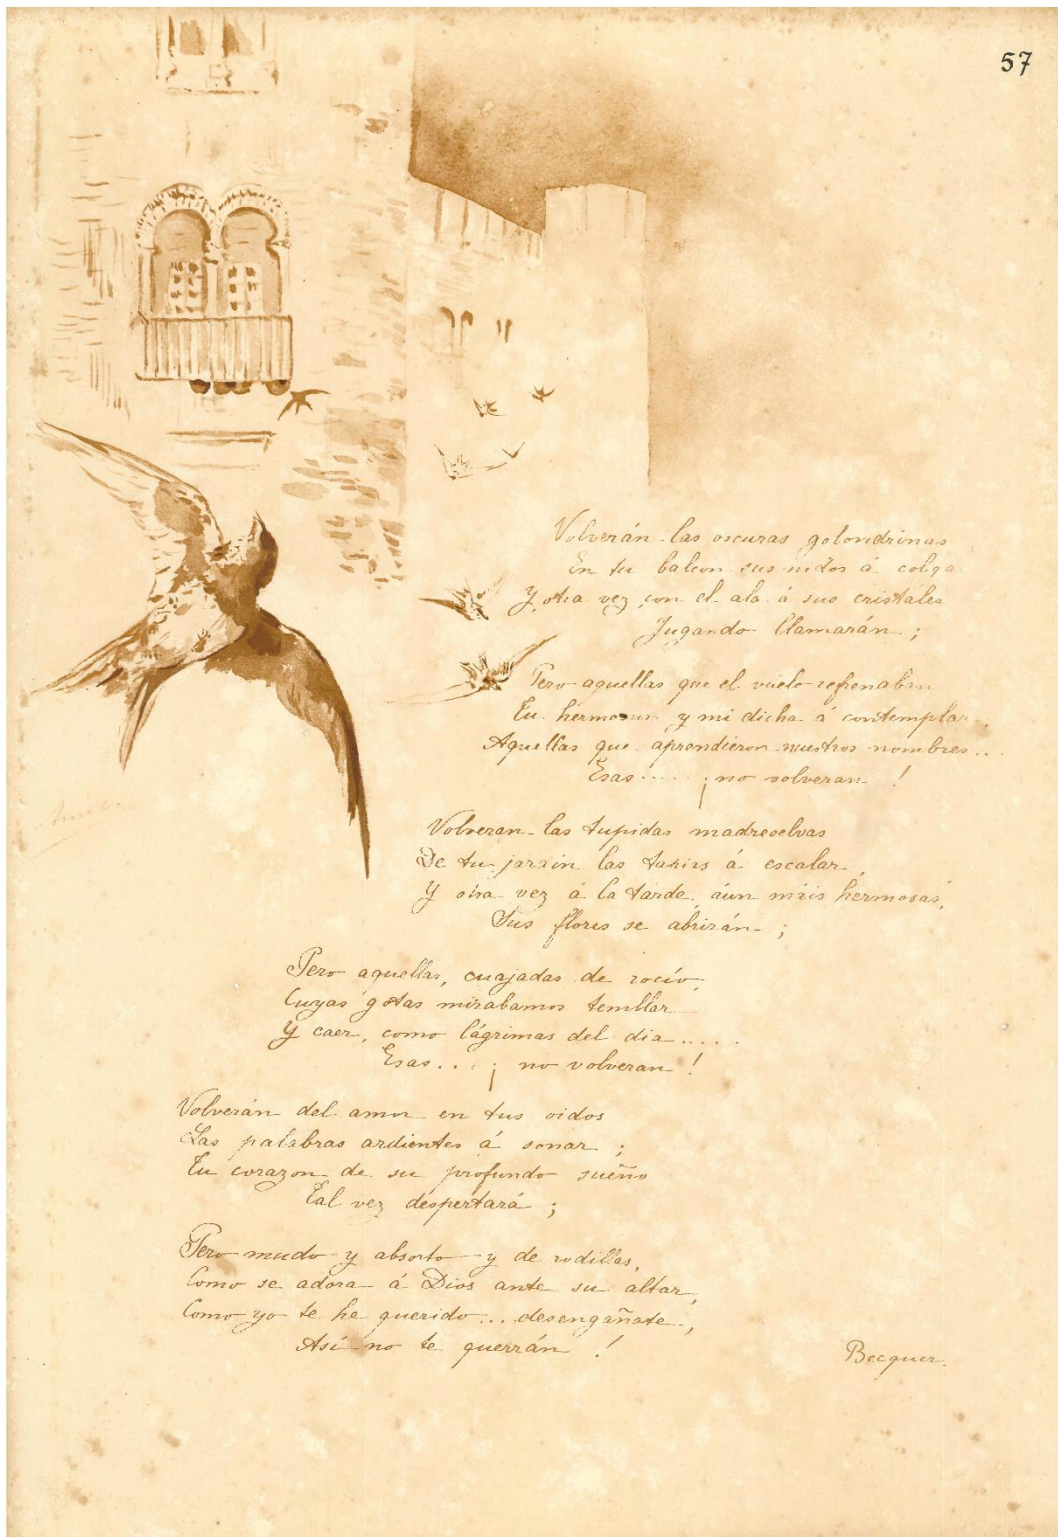 57
Volverán las oscuras golondrinas
En tu balcon sus nidos á colga
Y otra vez con el ala á sus cristales
Jugando llamarán ;
Pero aquellas que el vuelo refrenaban
Tu hermosura y mi dicha á contemplar,
Aquellas que aprendieron nuestros nombres...
Esas..... ¡no volveran !
Volveran las tupidas madreselvas
De tu jardin las tapias á escalar,
Y otra vez á la tarde, aún más hermosas,
Sus flores se abrirán ;
Pero aquellas, cuajadas de rocío,
Cuyas gotas mirabamos temblar
Y caer, como lágrimas del dia.....
Esas... ¡ no volveran !
Volverán del amor en tus oidos
Las palabras ardientes á sonar ;
Tu corazon de su profundo sueño
Tal vez despertará ;
Pero mudo y absorto y de rodillas,
Como se adora á Dios ante su altar,
Como yo te he querido... desengañate,
Asi no te querrán !
Becquer.